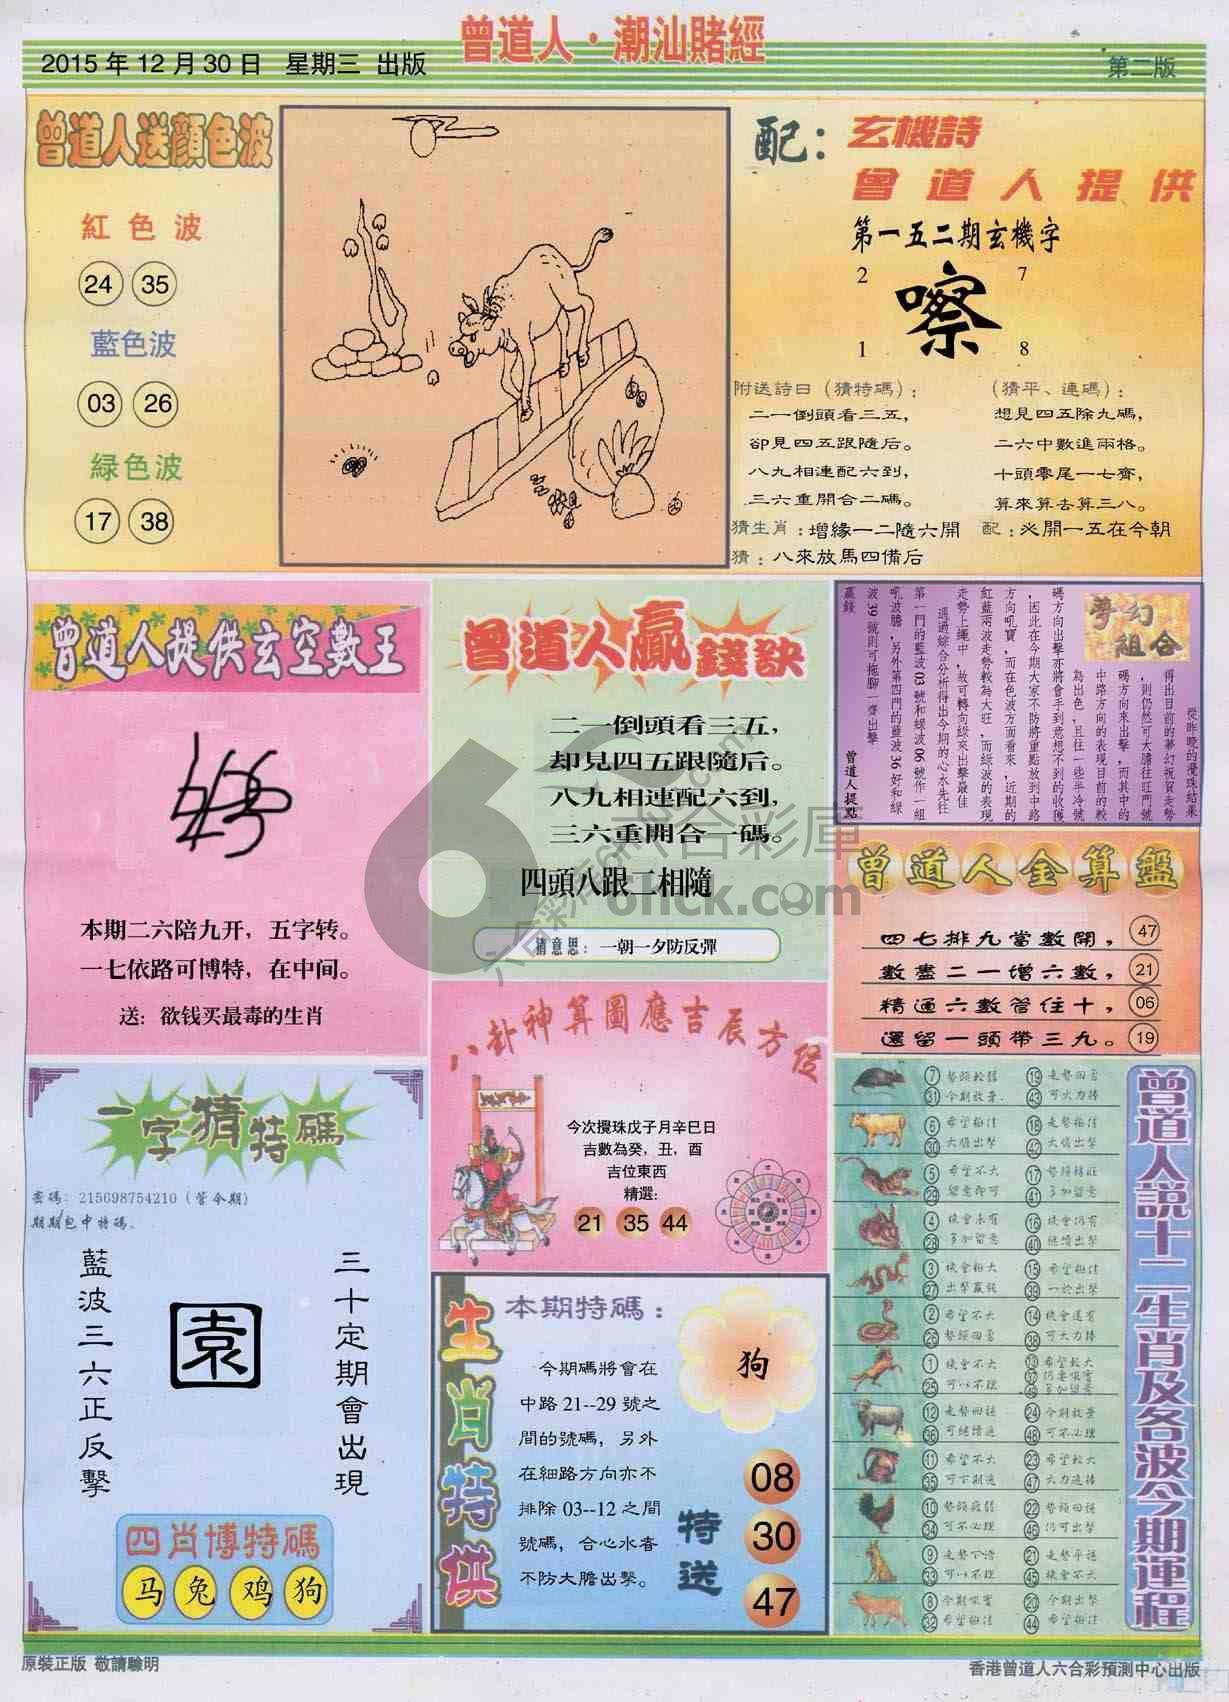 曾道人·潮汕賭經
2015年12月30日 星期三 出版
第二版
曾道人送顏色波
紅色波
24 35
藍色波
03 26
緑色波
17 38
配：玄機詩
曾道人提供
第一五二期玄機字
2 7
嚓
1 8
附送詩曰（猜特碼）：
二一倒頭看三五，
卻見四五跟隨后。
八九相連配六到，
三六重開合二碼。
（猜平、連碼）：
想見四五除九碼，
二六中數進兩格。
十頭零尾一七齊，
算來算去算三八。
猜生肖：增緣一二隨六開 配：必開一五在今朝
猜：八來放馬四備后
曾道人提供玄空數王
本期二六陪九开，五字转。
一七依路可博特，在中间。
送：欲钱买最毒的生肖
曾道人贏錢訣
二一倒頭看三五，
却見四五跟隨后。
八九相連配六到，
三六重開合一碼。
四頭八跟二相隨
猜意思：一朝一夕防反彈
夢幻組合
從昨晚的攪珠結果
得出目前的夢幻祝賀走勢
，則仍然可大膽往旺門號
碼方向來出擊，而其中的
中路方向的表現目前的較
為出色，且往一些半冷號
碼方向出擊亦將會手到意想不到的收獲
，因此在今期大家不防將重點放到中路
方向吼寶，而在色波方面看來，近期的
紅藍兩波走勢較為大旺，而綠波的表現
走勢上繩中，故可轉向綠來出擊最佳
。通過綜合分析得出今期的心水先往
第一門的藍波03號和綠波06號作一組
吼波膽，另外第四門的藍波36好和綠
波39號則可拖腳一齊出擊
贏錢
曾道人提點
曾道人金算盤
四七排九當數開， 47
數盡二一增六數， 21
精通六數管住十， 06
還留一頭帶三九。 19
八卦神算圖應吉辰方位
今次攪珠戊子月辛巳日
吉數為癸，丑，酉
吉位東西
精選：
21 35 44
一字猜特碼
密碼：215698754210（管令期）
期期包中特碼.
藍波三六正反擊
園
三十定期會出現
四肖博特碼
马 兔 鸡 狗
生肖特供
本期特碼：
狗
今期碼將會在
中路21--29號之
間的號碼，另外
在細路方向亦不
排除03--12之間
號碼，合心水者
不防大膽出擊。
特送
08
30
47
曾道人說十二生肖及各波今期運程
7 勢頭較弱 19 走勢回落
31 今期放棄 43 可大力捧
6 希望極佳 18 走勢極佳
30 大膽出擊 42 大膽出擊
5 希望不大 17 勢頭穩旺
29 留意即可 41 多加留意
4 機會未有 16 機會仍有
28 多加留意 40 繼續出擊
3 機會極大 15 希望極佳
27 出擊贏錢 39 一於出擊
2 希望不大 14 機會還有
26 勢頭回落 38 可大力捧
1 機會不大 13 希望較大
25 可以不理 37
49 多加留意
12 走勢回穩 24 今期放棄
36 可繼續追 48 可不必理
11 希望不大 23 希望較大
35 可下期追 47 大力追捧
10 勢頭疲弱 22 勢頭回穩
34 可不必理 46 仍可出擊
9 走勢下滑 21 走勢平穩
33 可以不理 45 機會不大
8 今期吼實 20 今期出擊
32 希望極佳 44 希望極佳
原裝正版 敬請驗明
香港曾道人六合彩預測中心出版
六合彩庫
6hck.com